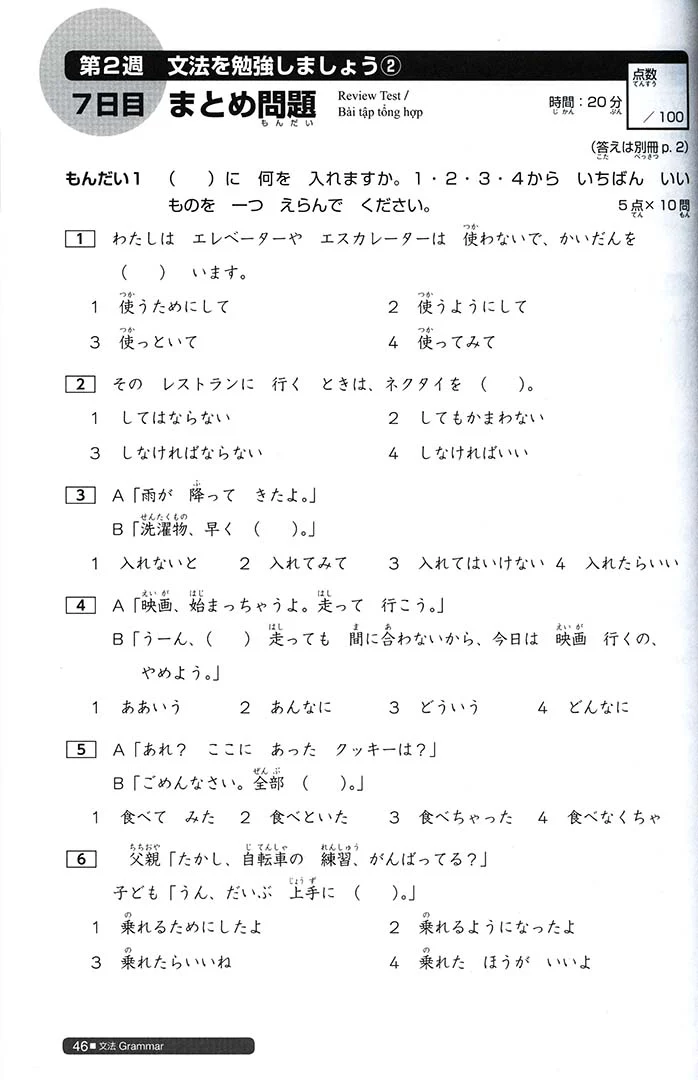 第2週 文法を勉強しましょう②
7日目 まとめ問題
もんだい
Review Test /
Bài tập tổng hợp
時間：20分
じかん ぷん
点数
てんすう
/ 100
（答えは別冊 p. 2）
こた べっさつ
もんだい1 （ ）に 何を 入れますか。1・2・3・4から いちばん いい
ものを 一つ えらんで ください。 5点×10問
てん もん
つか
1 わたしは エレベーターや エスカレーターは 使わないで、かいだんを
（ ） います。
つか つか
1 使うためにして 2 使うようにして
つか つか
3 使っといて 4 使ってみて
2 その レストランに 行く ときは、ネクタイを （ ）。
1 してはならない 2 してもかまわない
3 しなければならない 4 しなければいい
ふ
3 A「雨が 降って きたよ。」
せんたくもの
B「洗濯物、早く （ ）。」
1 入れないと 2 入れてみて 3 入れてはいけない 4 入れたらいい
えいが はじ はし
4 A「映画、始まっちゃうよ。走って 行こう。」
はし ま あ えいが
B「うーん、（ ） 走っても 間に合わないから、今日は 映画 行くの、
やめよう。」
1 ああいう 2 あんなに 3 どういう 4 どんなに
5 A「あれ？ ここに あった クッキーは？」
ぜんぶ
B「ごめんなさい。全部 （ ）。」
1 食べて みた 2 食べといた 3 食べちゃった 4 食べなくちゃ
ちちおや じてんしゃ れんしゅう
6 父親「たかし、自転車の 練習、がんばってる？」
じょうず
子ども「うん、だいぶ 上手に （ ）。」
の の
1 乗れるためにしたよ 2 乗れるようになったよ
の の
3 乗れたらいいね 4 乗れた ほうが いいよ
46■文法 Grammar